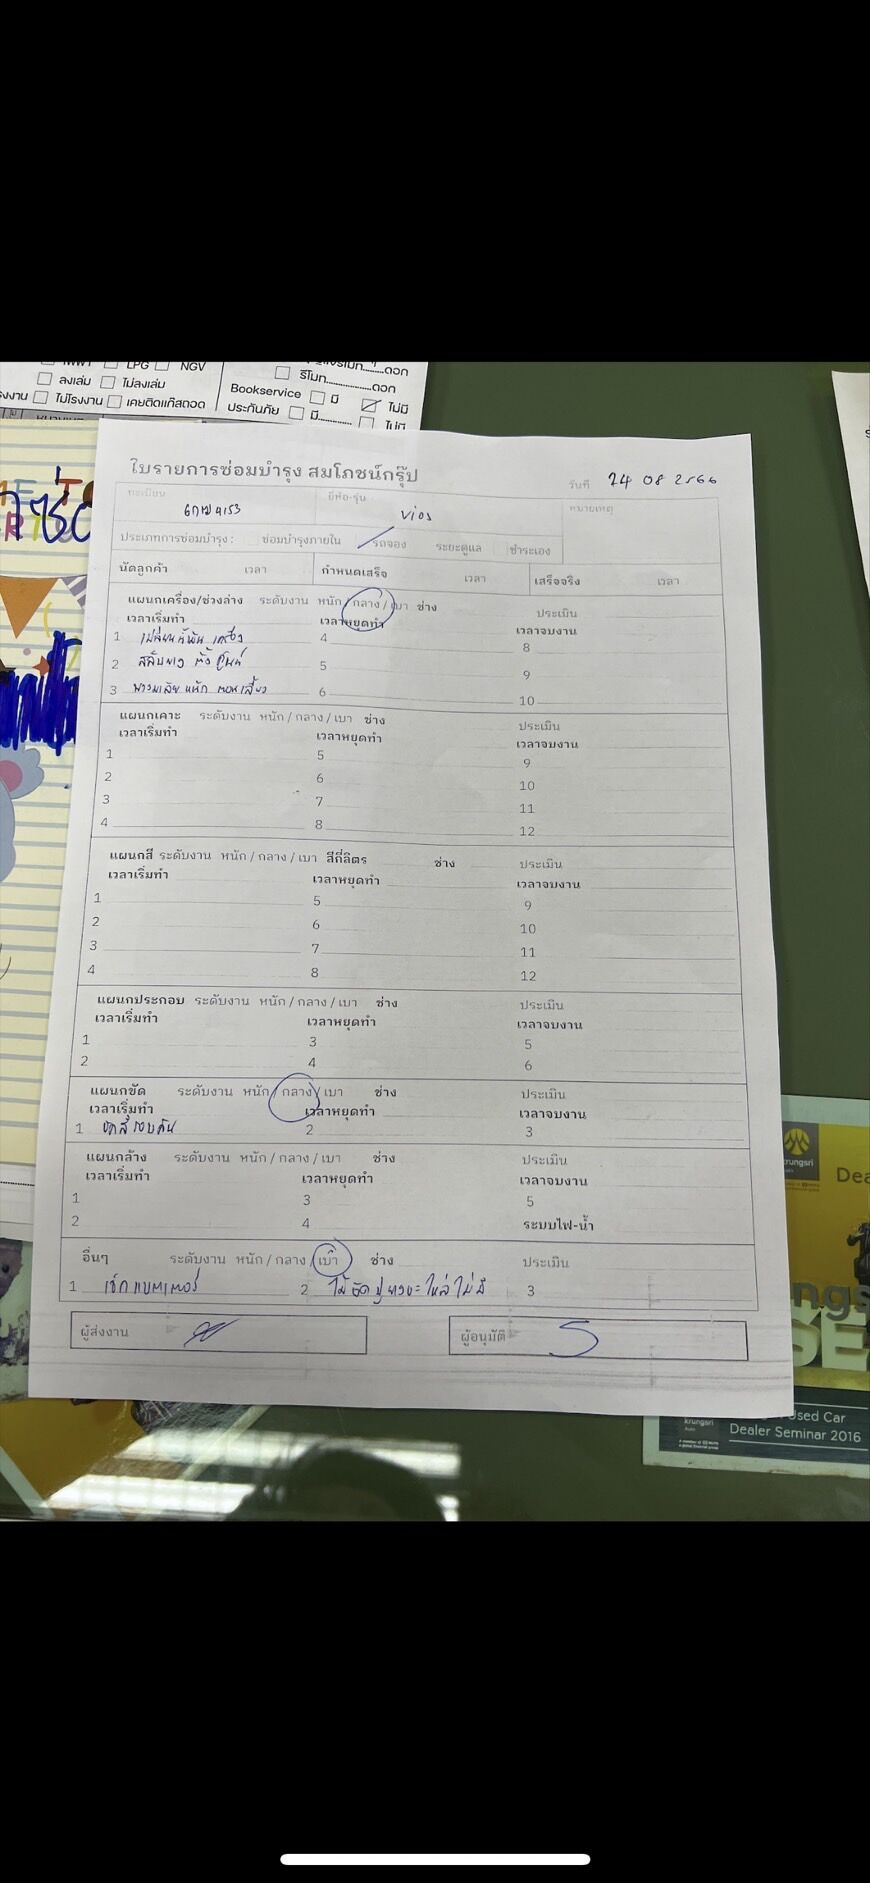 LPG NGV
ลงเล่ม ไม่ลงเล่ม
ไม่โรงงาน เคยติดแก๊สถอด
ดอก
รีโมท..................ดอก
Bookservice มี ไม่มี
ประกันภัย มี............
ใบรายการซ่อมบำรุง สมโภชน์กรุ๊ป
วันที่ 24 08 2566
ทะเบียน ยี่ห้อ-รุ่น Vios หมายเหตุ
ประเภทการซ่อมบำรุง : ซ่อมบำรุงภายใน รถจอง ระยะดูแล ชำระเอง
นัดลูกค้า เวลา กำหนดเสร็จ เวลา เสร็จจริง เวลา
แผนกเครื่อง/ช่วงล่าง ระดับงาน หนัก / กลาง / เบา ช่าง ประเมิน
เวลาเริ่มทำ เวลาหยุดทำ เวลาจบงาน
1 เปลี่ยนน้ำมันเครื่อง 4 8
2 สลับยาง ตั้งศูนย์ 5 9
3 พวงมาลัยหนัก ตอนเลี้ยว 6 10
แผนกเคาะ ระดับงาน หนัก / กลาง / เบา ช่าง ประเมิน
เวลาเริ่มทำ เวลาหยุดทำ เวลาจบงาน
1 5 9
2 6 10
3 7 11
4 8 12
แผนกสี ระดับงาน หนัก / กลาง / เบา สีกี่ลิตร ช่าง ประเมิน
เวลาเริ่มทำ เวลาหยุดทำ เวลาจบงาน
1 5 9
2 6 10
3 7 11
4 8 12
แผนกประกอบ ระดับงาน หนัก / กลาง / เบา ช่าง ประเมิน
เวลาเริ่มทำ เวลาหยุดทำ เวลาจบงาน
1 3 5
2 4 6
แผนกขัด ระดับงาน หนัก / กลาง / เบา ช่าง ประเมิน
เวลาเริ่มทำ เวลาหยุดทำ เวลาจบงาน
1 ขัดสีรอบคัน 2 3
แผนกล้าง ระดับงาน หนัก / กลาง / เบา ช่าง ประเมิน
เวลาเริ่มทำ เวลาหยุดทำ เวลาจบงาน
1 3 5
2 4 ระบบไฟ-น้ำ
อื่นๆ ระดับงาน หนัก / กลาง / เบา ช่าง ประเมิน
1 เช็กแบตเตอรี่ 2 3
ผู้ส่งงาน ผู้อนุมัติ
krungsri
Used Car
Dealer Seminar 2016